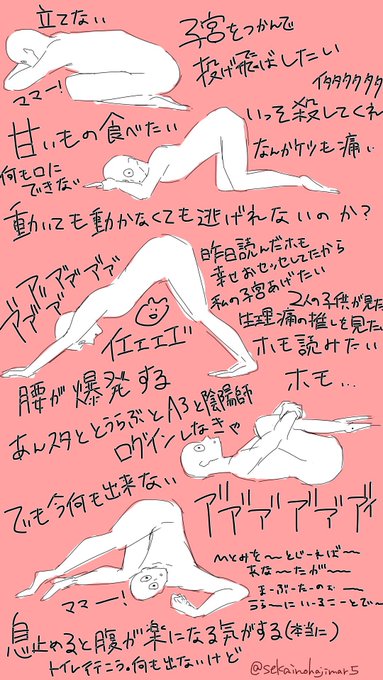 立てない
ママー!
子宮をつかんで
投げ飛ばしたい
イタタタタタタ
いっそ殺してくれ
甘いもの食べたい
なんかケツも痛い
何も口に
できない
動いても動かなくても逃げれないのか?
昨日読んだホモ
幸せおセッセしてたから
私の子宮あげたい
2人の子供が見た
生理痛の推しを見た
ホモ読みたい
アッアァアァアァ
アァアァアァ
イエエエエ
腰が爆発する
ホモ…
あんスタととうらぶとA3と陰陽師
ログインしなきゃ
でも今何も出来ない
アァアァアァアァアァ
ひとみを〜とじーれば〜
あな〜たが〜
まーぶたーのぅ〜
うら〜にいーるーことで〜
ママー!
息止めると腹が楽になる気がする(本当に)
トイレ行こう。何も出ないけど
@sekainohajimar5